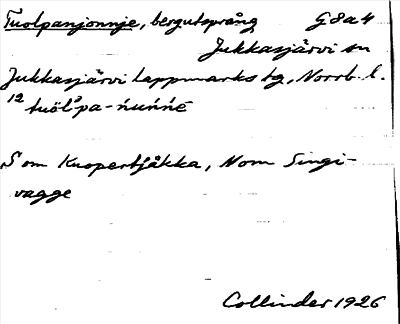 Tuolpanjonnje, bergutsprång G8a4
Jukkasjärvi sn
Jukkasjärvi lappmarks tg, Norrb l.
12 tuölpa-ńuńńē
S om Kuopertjåkka, N om Singi-
vagge
Collinder 1926